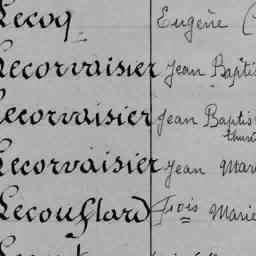 Lecoq Eugène (
Lecorvaisier Jean Baptis
Lecorvaisier Jean Baptis
Lecorvaisier Jean Mar
Lecouflard Fçois Marie